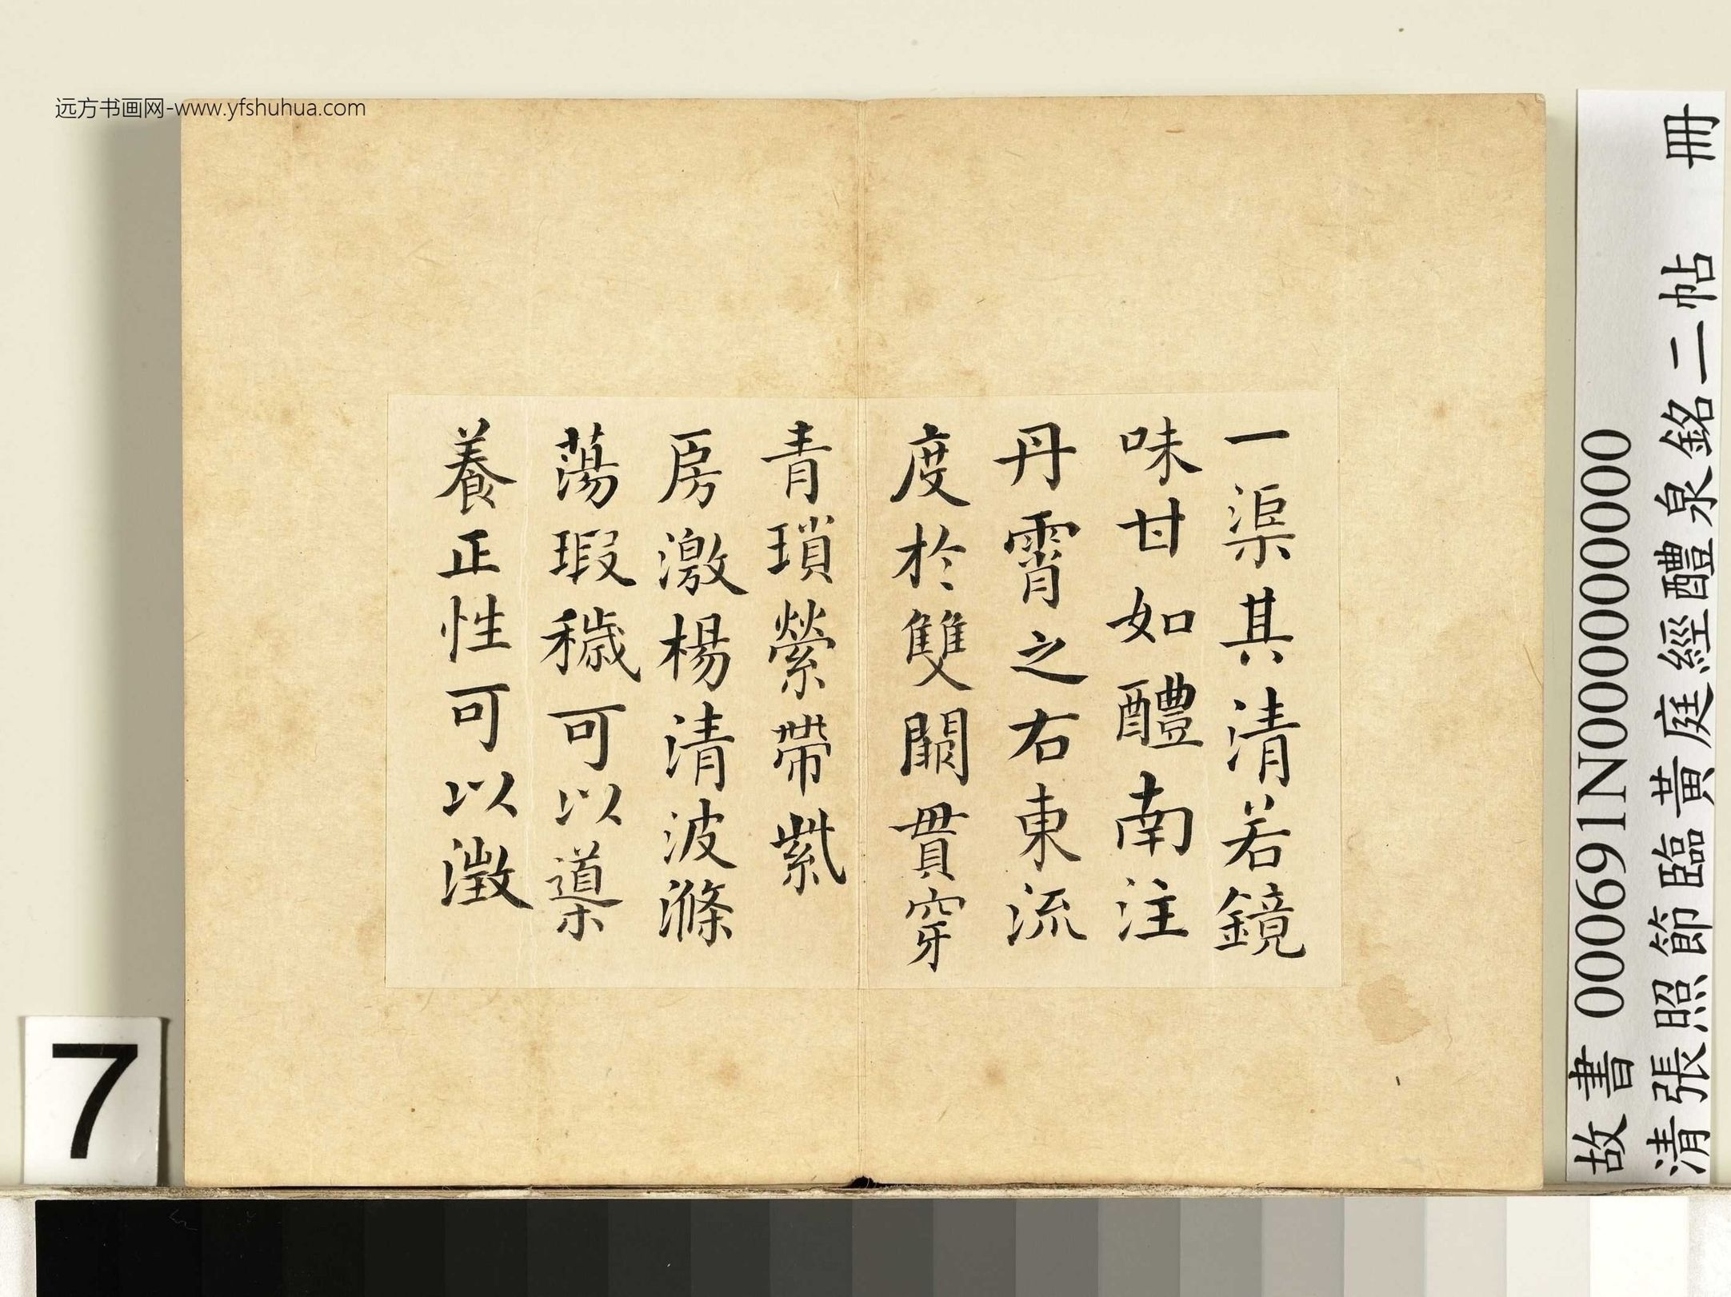 远方书画网-www.yfshuhua.com
一渠其清若鏡
味甘如醴南注
丹霄之右東流
度於雙闕貫穿
青瑣縈帶紫
房激楊清波滌
蕩瑕穢可以導
養正性可以澂
故書 000691N000000000
清張照節臨黃庭經醴泉銘二帖 冊
7